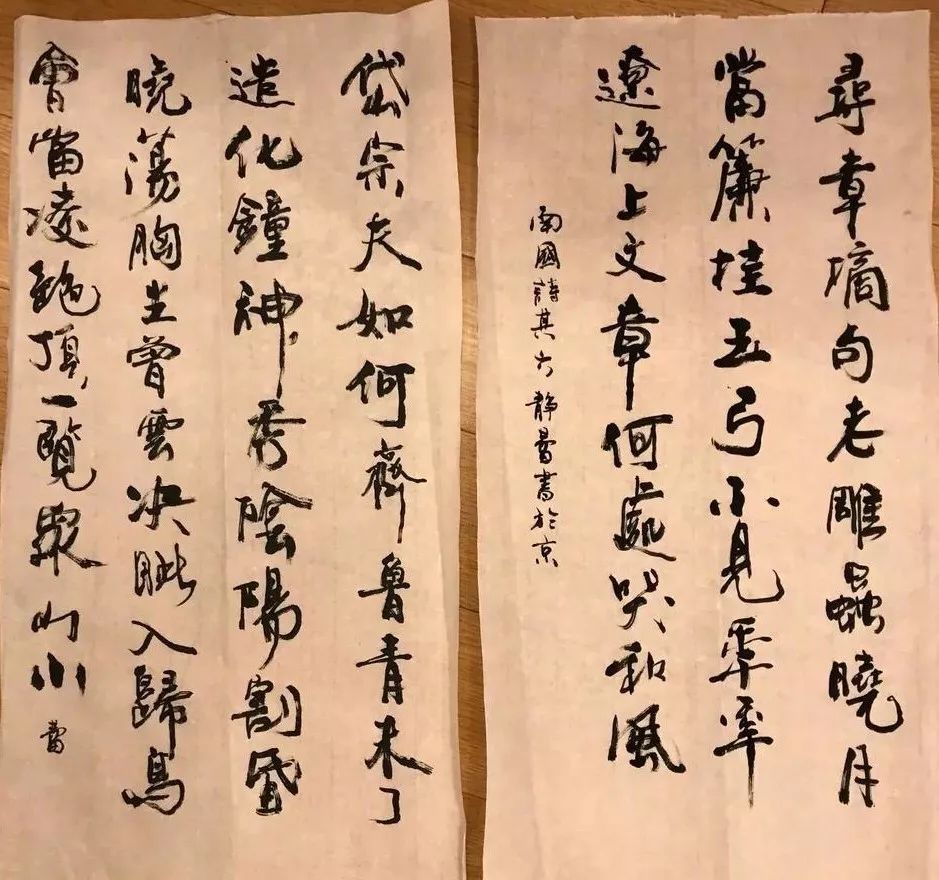 尋章摘句老雕蟲曉月
當簾挂玉弓不見年年
遼海上文章何處哭和風
南國詩其六静曼書於京
岱宗夫如何齊魯青未了
造化鐘神秀陰陽割昏
曉蕩胸生曾雲决眦入歸鳥
會當凌絶頂一覽眾山小